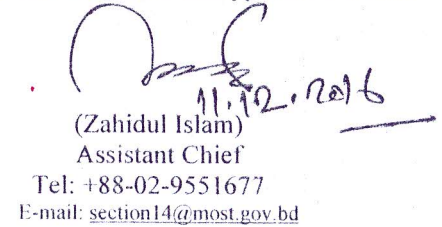 11.12.2016
(Zahidul Islam)
Assistant Chief
Tel: +88-02-9551677
E-mail: section14@most.gov.bd